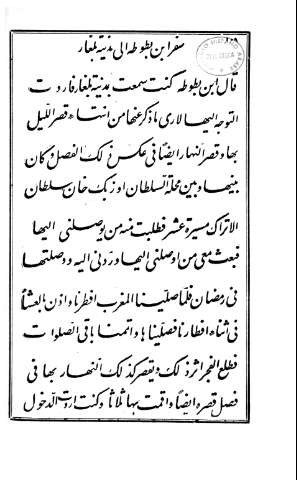 سفر ابن بطوطه الى مدنية بلغار
قال ابن بطوطه كنت سمعت بمدنية بلغار فاردت
التوجه اليها لارى ما ذكر عنها من انتهاء قصر الليل
بها و قصر النهار ايضاً فى عكس ذلك الفصل و كان
بينها و بين محلة السلطان اوزبك خان سلطان
الاتراك مسيرة عشر فطلبت منه من يوصلنى اليها
فبعث معى من اوصلنى اليها و ردنى اليه و وصلتها
فى رمضان فلما صلينا المغرب افطرنا و اذن بالعشأ
فى أثناء افطارنا فصليناها و اتممنا باقى الصلوات
فطلع الفجر اثر ذلك و يقصر كذلك النهار بها فى
فصل قصره ايضاً و اقمت بها ثلاثا و كنت اردت الدخول